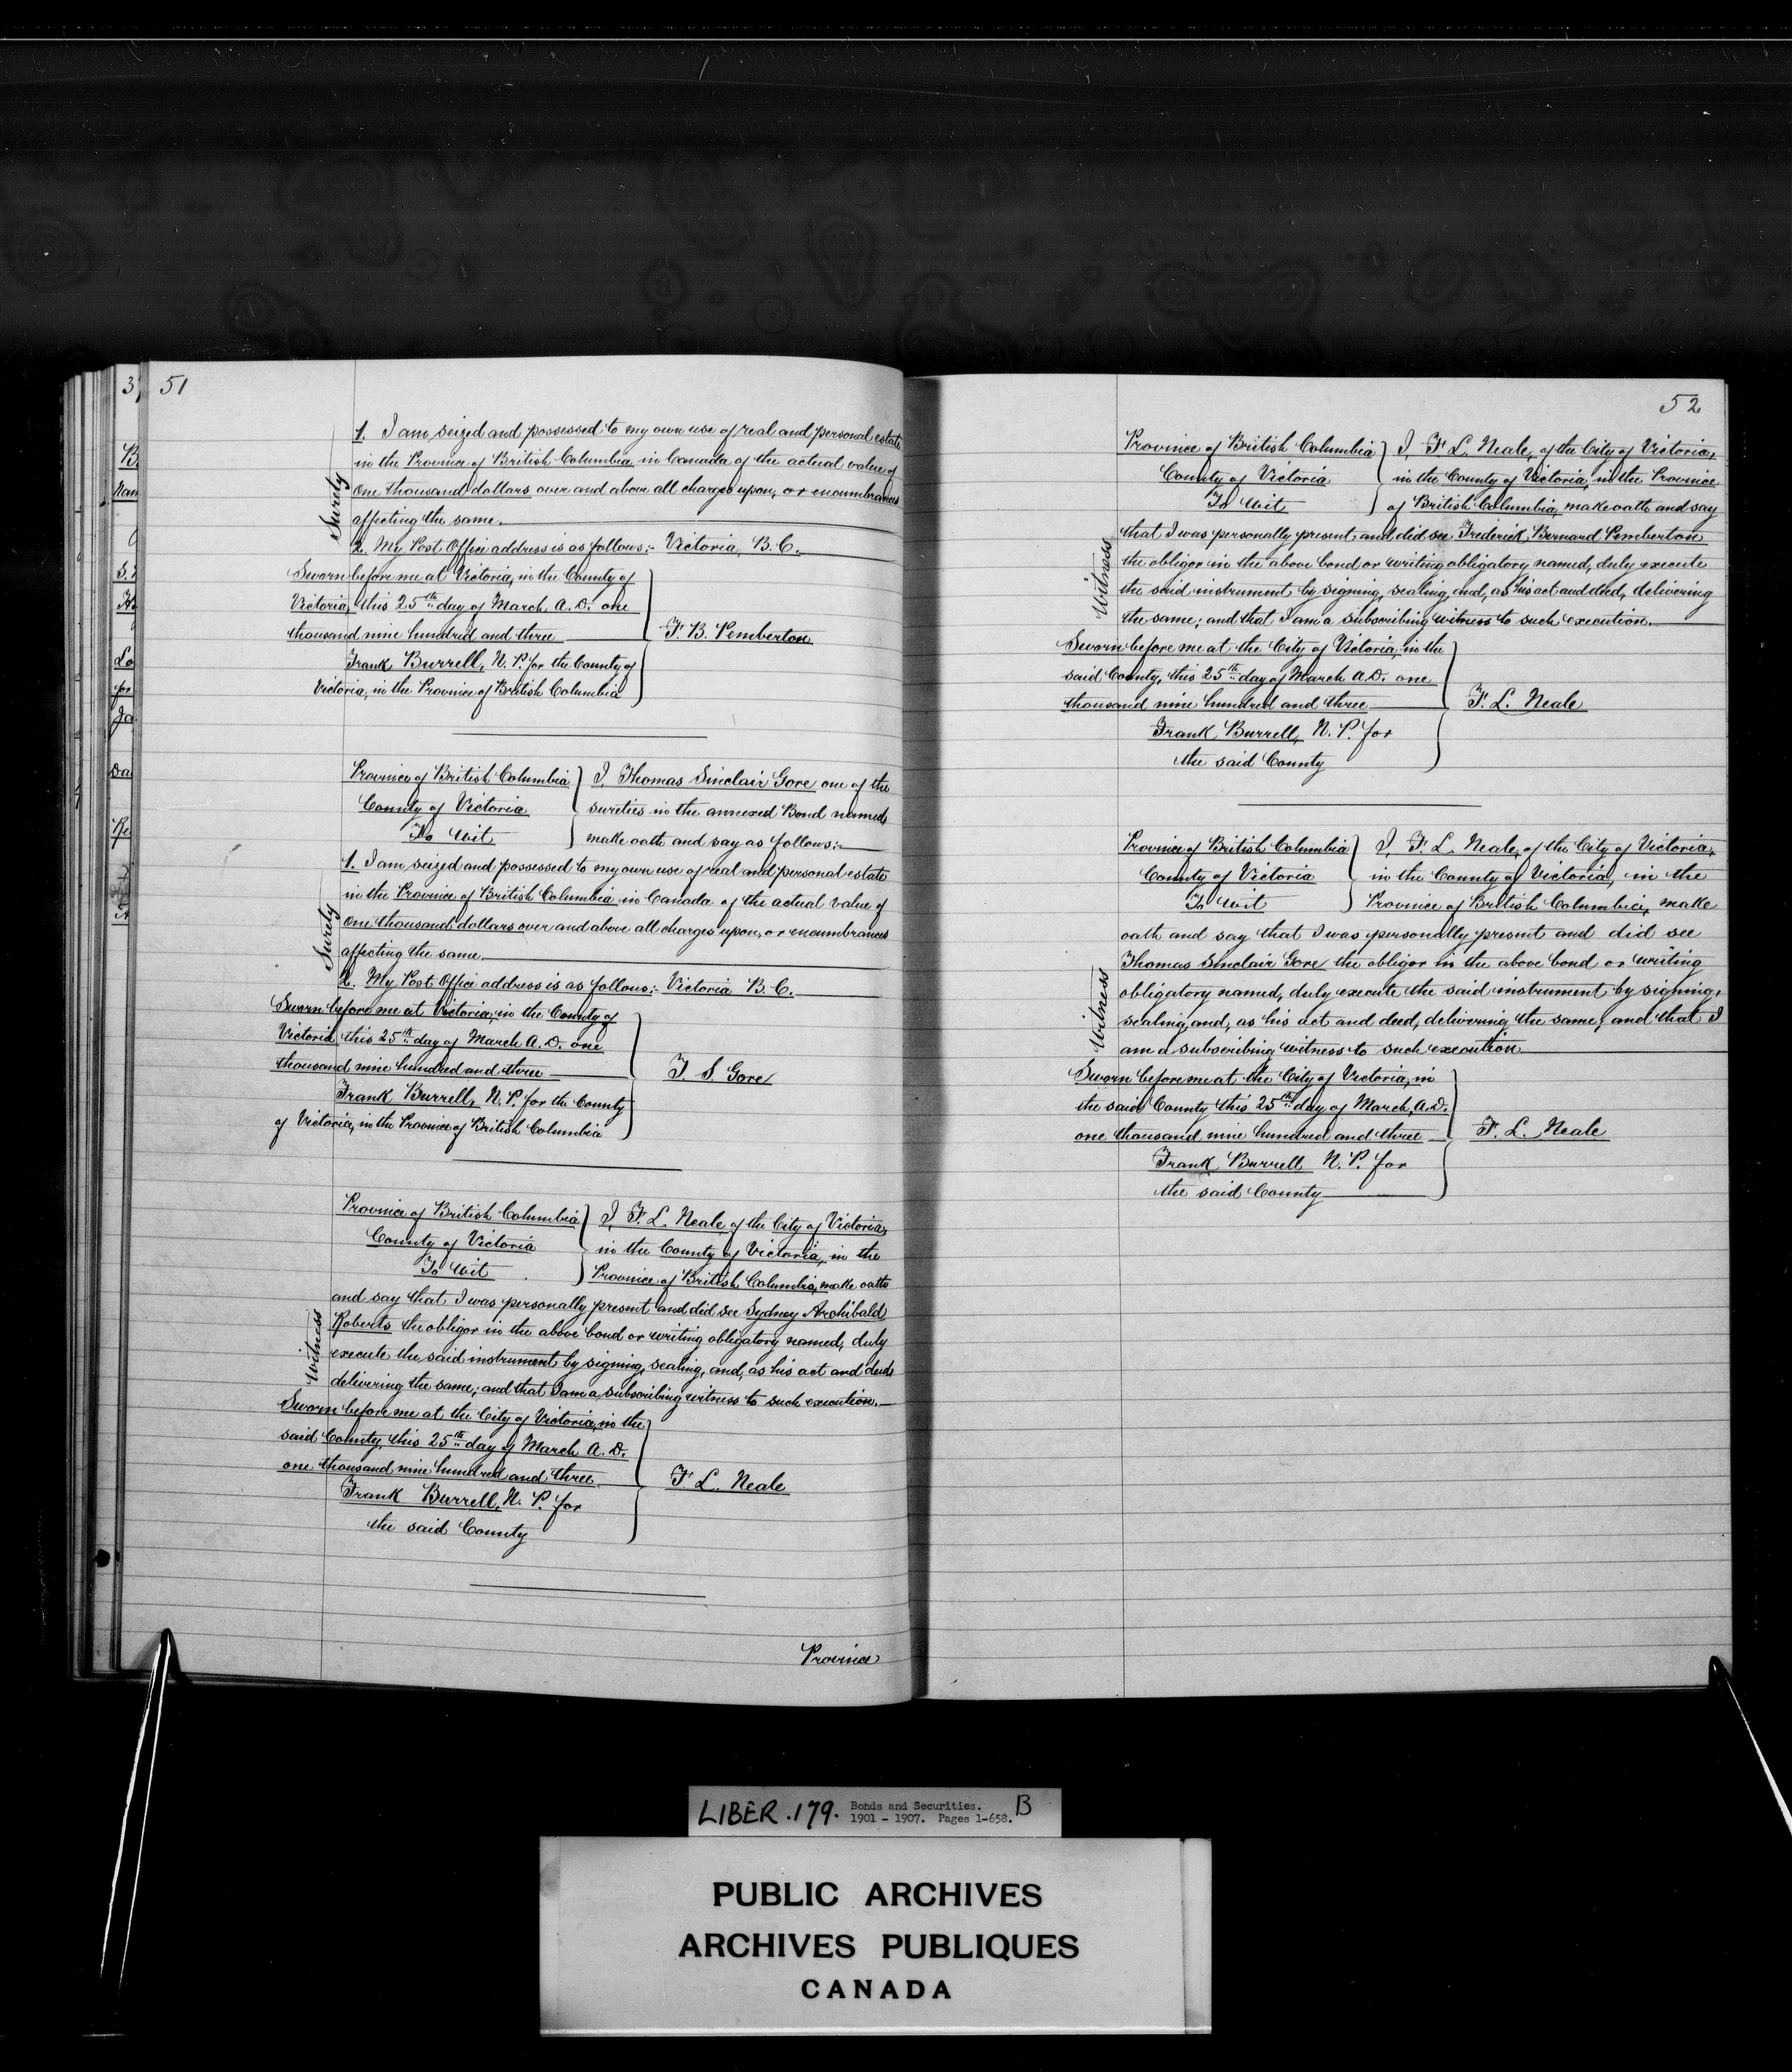 51
1. I am seized and possessed to my own use of real and personal estate
in the Province of British Columbia in Canada of the actual value of
one thousand dollars over and above all charges upon, or encumbrances
affecting the same.
Surety
2. My Post Office address is as follows:- Victoria, B.C.
Sworn before me at Victoria, in the County of
Victoria, this 25th day of March A.D. one
thousand nine hundred and three
F. B. Pemberton
Frank Burrell, N.P. for the County of
Victoria, in the Province of British Columbia
Province of British Columbia
County of Victoria
To Wit
I, Thomas Sinclair Gore one of the
sureties in the annexed Bond named,
make oath and say as follows:-
1. I am seized and possessed to my own use of real and personal estate
in the Province of British Columbia in Canada of the actual value of
one thousand dollars over and above all charges upon, or encumbrances
affecting the same.
Surety
2. My Post Office address is as follows:- Victoria B.C.
Sworn before me at Victoria, in the County of
Victoria this 25th day of March A.D. one
thousand nine hundred and three
T. S. Gore
Frank Burrell, N.P. for the County
of Victoria, in the Province of British Columbia
Province of British Columbia
County of Victoria
To Wit
I, F. L. Neale, of the City of Victoria,
in the County of Victoria, in the
Province of British Columbia, make oath
and say that I was personally present and did see Sydney Archibald
Roberts the obligor in the above bond or writing obligatory named, duly
execute the said instrument by signing, sealing, and, as his act and deed,
delivering the same; and that I am a subscribing witness to such execution.
Witness
Sworn before me at the City of Victoria, in the
said County, this 25th day of March A.D.
one thousand nine hundred and three
F. L. Neale
Frank Burrell, N.P. for
the said County
Province
52
Province of British Columbia
County of Victoria
To Wit
I, F. L. Neale, of the City of Victoria,
in the County of Victoria, in the Province
of British Columbia, make oath and say
that I was personally present and did see Frederick Bernard Pemberton
the obligor in the above bond or writing obligatory named, duly execute
the said instrument by signing, sealing, and, as his act and deed, delivering
the same; and that I am a subscribing witness to such execution.
Witness
Sworn before me at the City of Victoria, in the
said County, this 25th day of March A.D. one
thousand nine hundred and three
F. L. Neale
Frank Burrell, N.P. for
the said County
Province of British Columbia
County of Victoria
To Wit
I, F. L. Neale, of the City of Victoria,
in the County of Victoria, in the
Province of British Columbia, make
oath and say that I was personally present and did see
Thomas Sinclair Gore the obligor in the above bond or writing
obligatory named, duly execute the said instrument by signing,
sealing, and, as his act and deed, delivering the same; and that I
am a subscribing witness to such execution
Witness
Sworn before me at the City of Victoria, in
the said County this 25th day of March, A.D.
one thousand nine hundred and three
F. L. Neale
Frank Burrell N.P. for
the said County
LIBER .179. Bonds and Securities. B
1901 - 1907. Pages 1-658.
PUBLIC ARCHIVES
ARCHIVES PUBLIQUES
CANADA